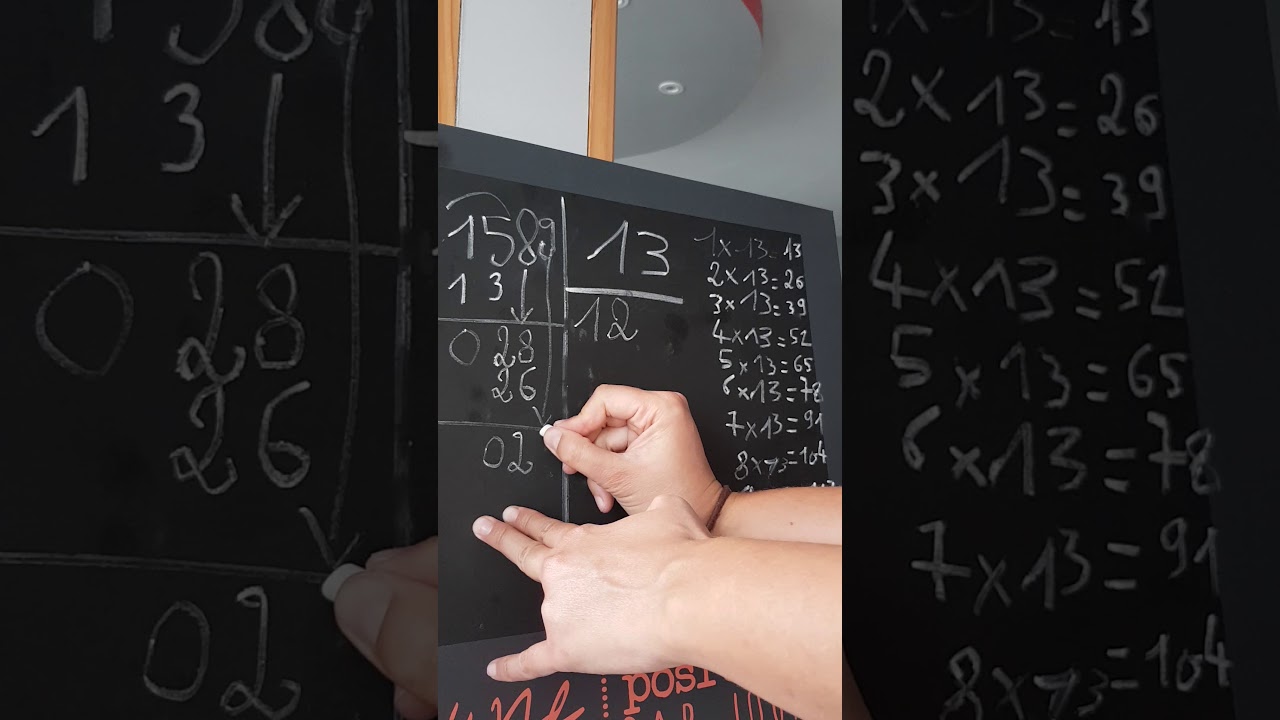 1589
13
13
028
26
02
12
1x13=13
2x13=26
3x13=39
4x13=52
5x13=65
6x13=78
7x13=91
8x13=104
post